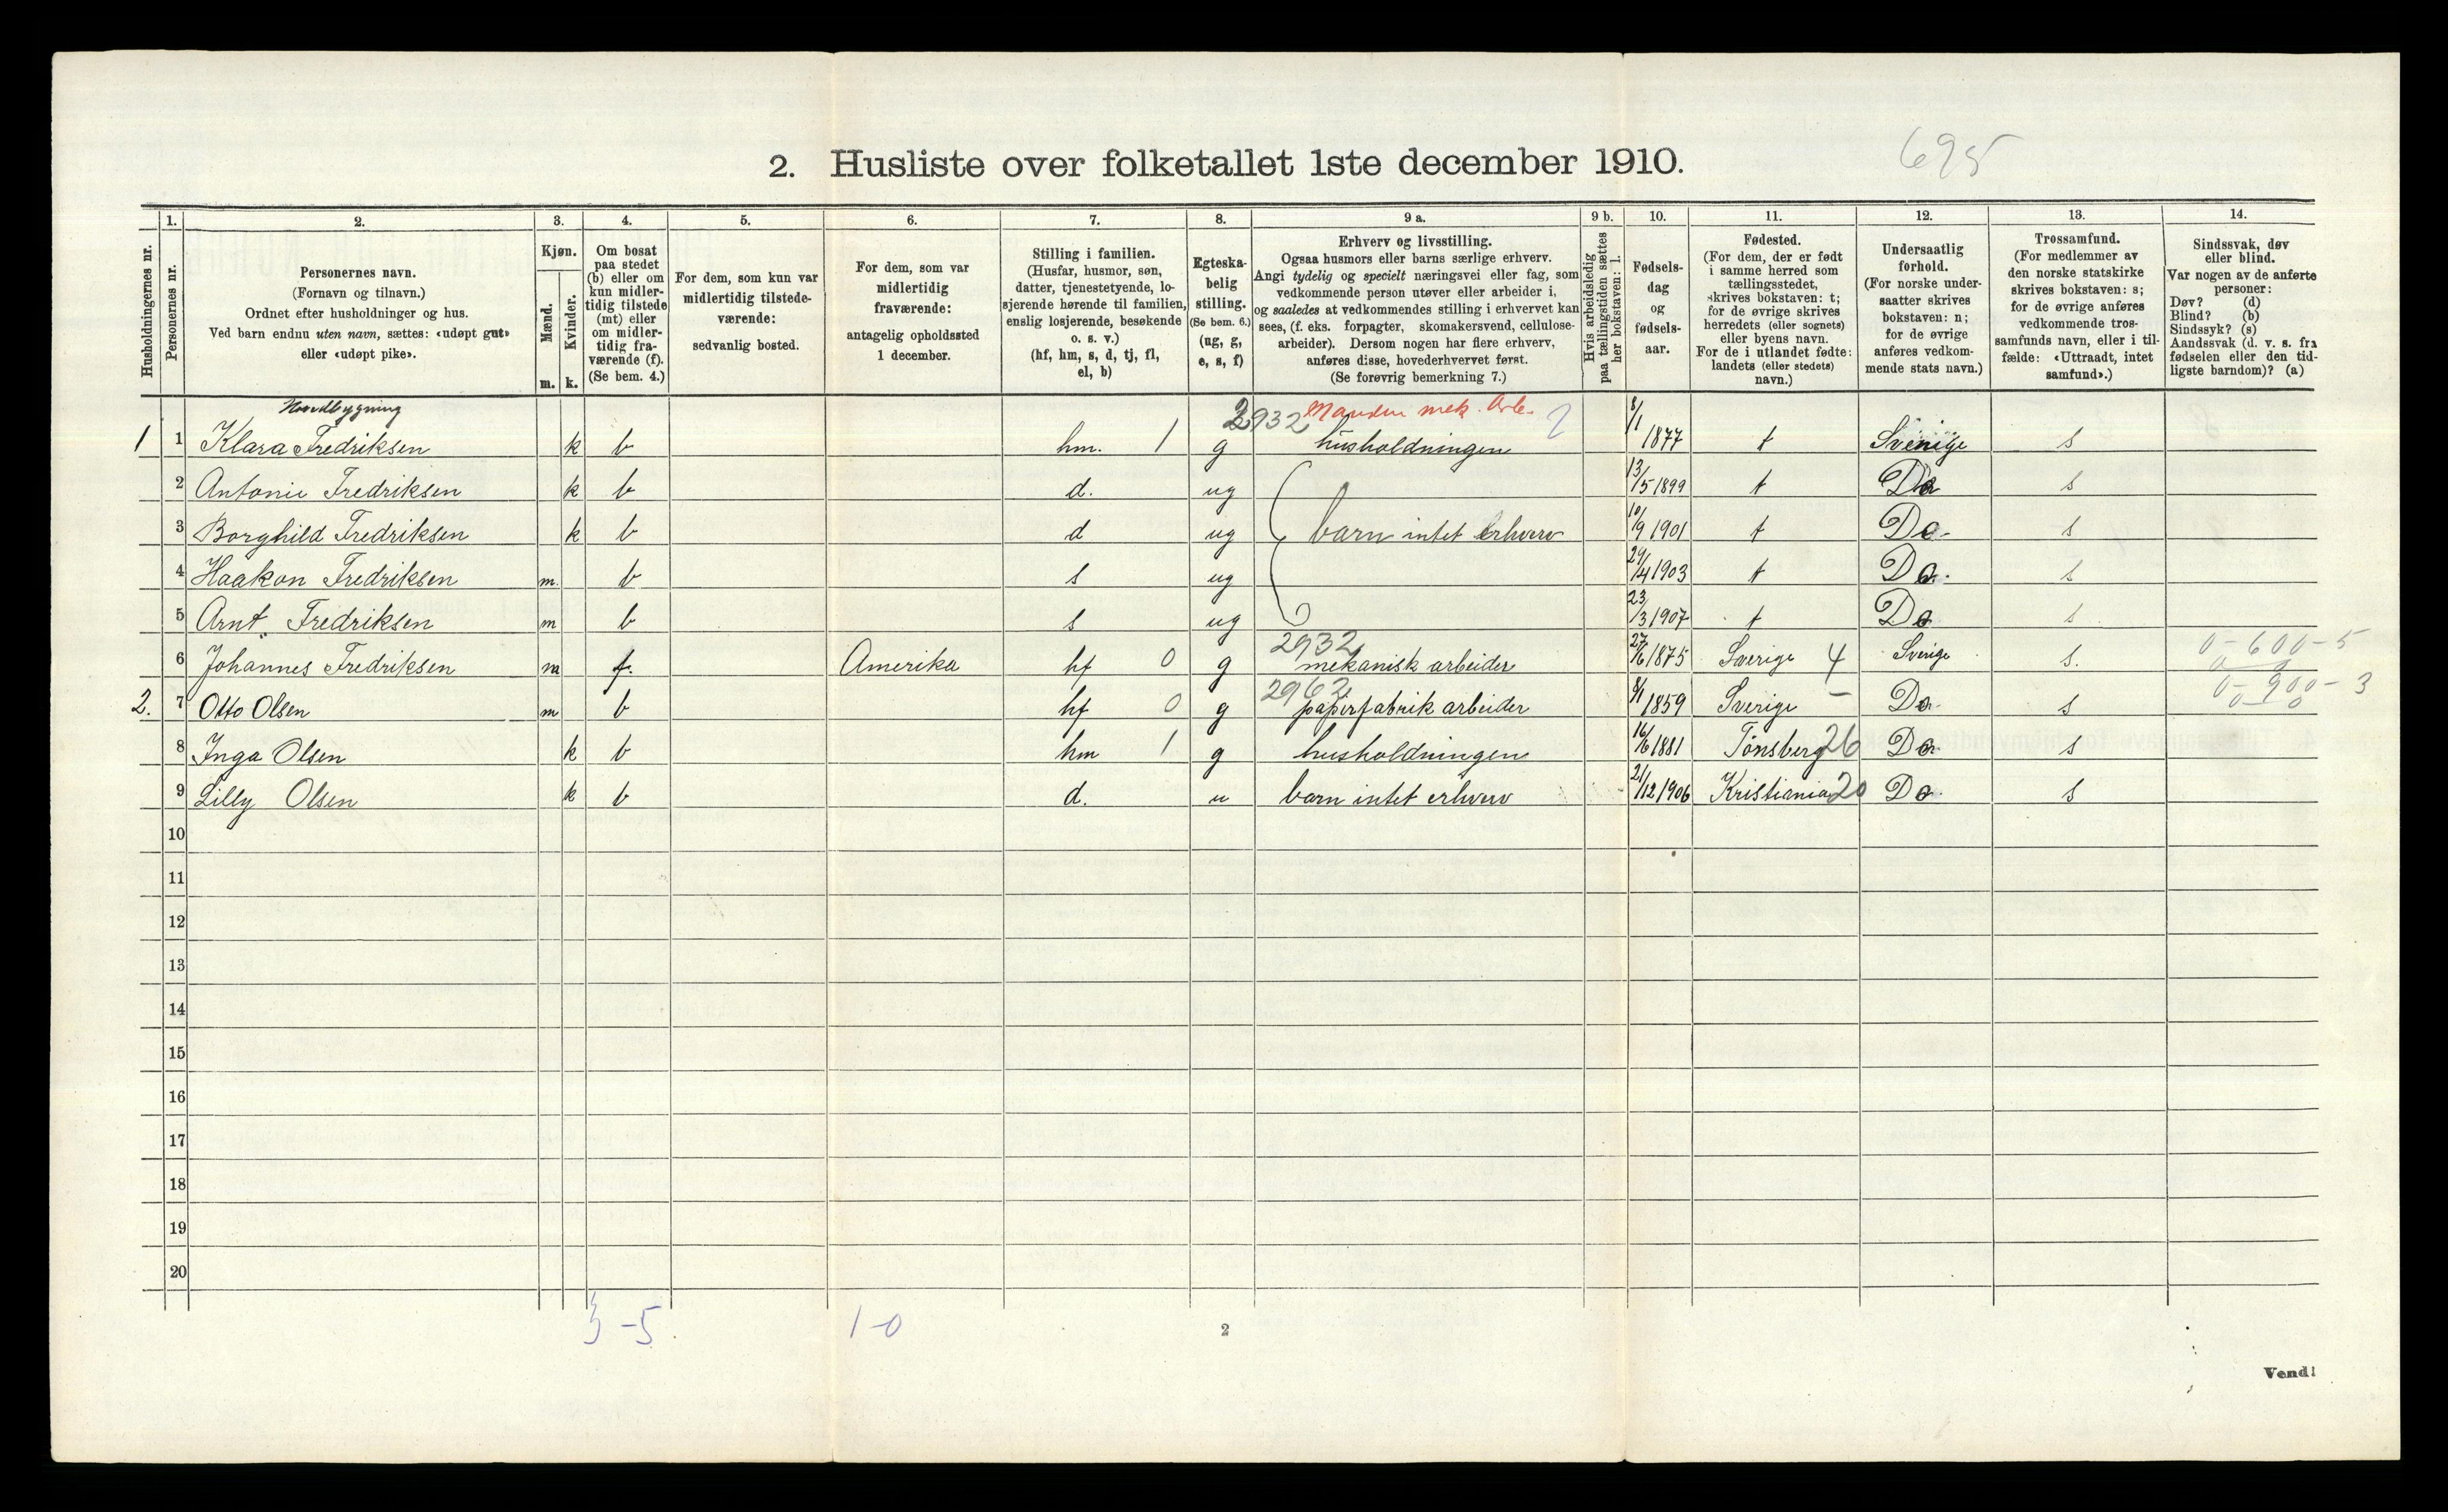 695
2. Husliste over folketallet 1ste december 1910.
Husholdningernes nr.
1. Personernes nr.
2. Personernes navn.
(Fornavn og tilnavn.)
Ordnet efter husholdninger og hus.
Ved barn endnu uten navn, sættes: «udøpt gut»
eller «udøpt pike».
3. Kjøn.
Mænd. m.
Kvinder. k.
4. Om bosat
paa stedet
(b) eller om
kun midler-
tidig tilstede
(mt) eller
om midler-
tidig fra-
værende (f).
(Se bem. 4.)
5. For dem, som kun var
midlertidig tilstede-
værende:
sedvanlig bosted.
6. For dem, som var
midlertidig
fraværende:
antagelig opholdssted
1 december.
7. Stilling i familien.
(Husfar, husmor, søn,
datter, tjenestetyende, lo-
sjerende hørende til familien,
enslig losjerende, besøkende
o. s. v.)
(hf, hm, s, d, tj, fl,
el, b)
8. Egteska-
belig
stilling.
(Se bem. 6.)
(ug, g,
e, s, f)
9 a. Erhverv og livsstilling.
Ogsaa husmors eller barns særlige erhverv.
Angi tydelig og specielt næringsvei eller fag, som
vedkommende person utøver eller arbeider i,
og saaledes at vedkommendes stilling i erhvervet kan
sees, (f. eks. forpagter, skomakersvend, cellulose-
arbeider). Dersom nogen har flere erhverv,
anføres disse, hovederhvervet først.
(Se forøvrig bemerkning 7.)
9 b. Hvis arbeidsledig
paa tællingstiden sættes
her bokstaven: l.
10. Fødsels-
dag
og
fødsels-
aar.
11. Fødested.
(For dem, der er født
i samme herred som
tællingsstedet,
skrives bokstaven: t;
for de øvrige skrives
herredets (eller sognets)
eller byens navn.
For de i utlandet fødte:
landets (eller stedets)
navn.)
12. Undersaatlig
forhold.
(For norske under-
saatter skrives
bokstaven: n;
for de øvrige
anføres vedkom-
mende stats navn.)
13. Trossamfund.
(For medlemmer av
den norske statskirke
skrives bokstaven: s;
for de øvrige anføres
vedkommende tros-
samfunds navn, eller i til-
fælde: «Uttraadt, intet
samfund».)
14. Sindssvak, døv
eller blind.
Var nogen av de anførte
personer:
Døv? (d)
Blind? (b)
Sindssyk? (s)
Aandssvak (d. v. s. fra
fødselen eller den tid-
ligste barndom)? (a)
Hovedbygning 2932 Manden mek. Arb. 2
1 1 Klara Fredriksen k b hm. 1 g husholdningen 8/1 1877 t Sverige s
2 Antonie Fredriksen k b d. ug 13/5 1899 t Do s
3 Borghild Fredriksen k b d ug barn intet erhverv 10/9 1901 t Do s
4 Haakon Fredriksen m. b s ug 29/4 1903 t Do. s
5 Arnt Fredriksen m b s ug 23/3 1907 t Do s
2932 0-600-5
6 Johannes Fredriksen m f. Amerika hf 0 g mekanisk arbeider 27/6 1875 Sverige 4 Sverige s.
2962 0-900-3
2. 7 Otto Olsen m b hf 0 g papirfabrik arbeider 8/1 1859 Sverige - Do s
8 Inga Olsen k b hm 1 g husholdningen 16/6 1881 Tønsberg 26 Do s
9 Lilly Olsen k b d. u barn intet erhverv 21/12 1906 Kristiania 20 Do s
10
11
12
13
14
15
16
17
18
19
20
3-5 1-0
2
Vend!